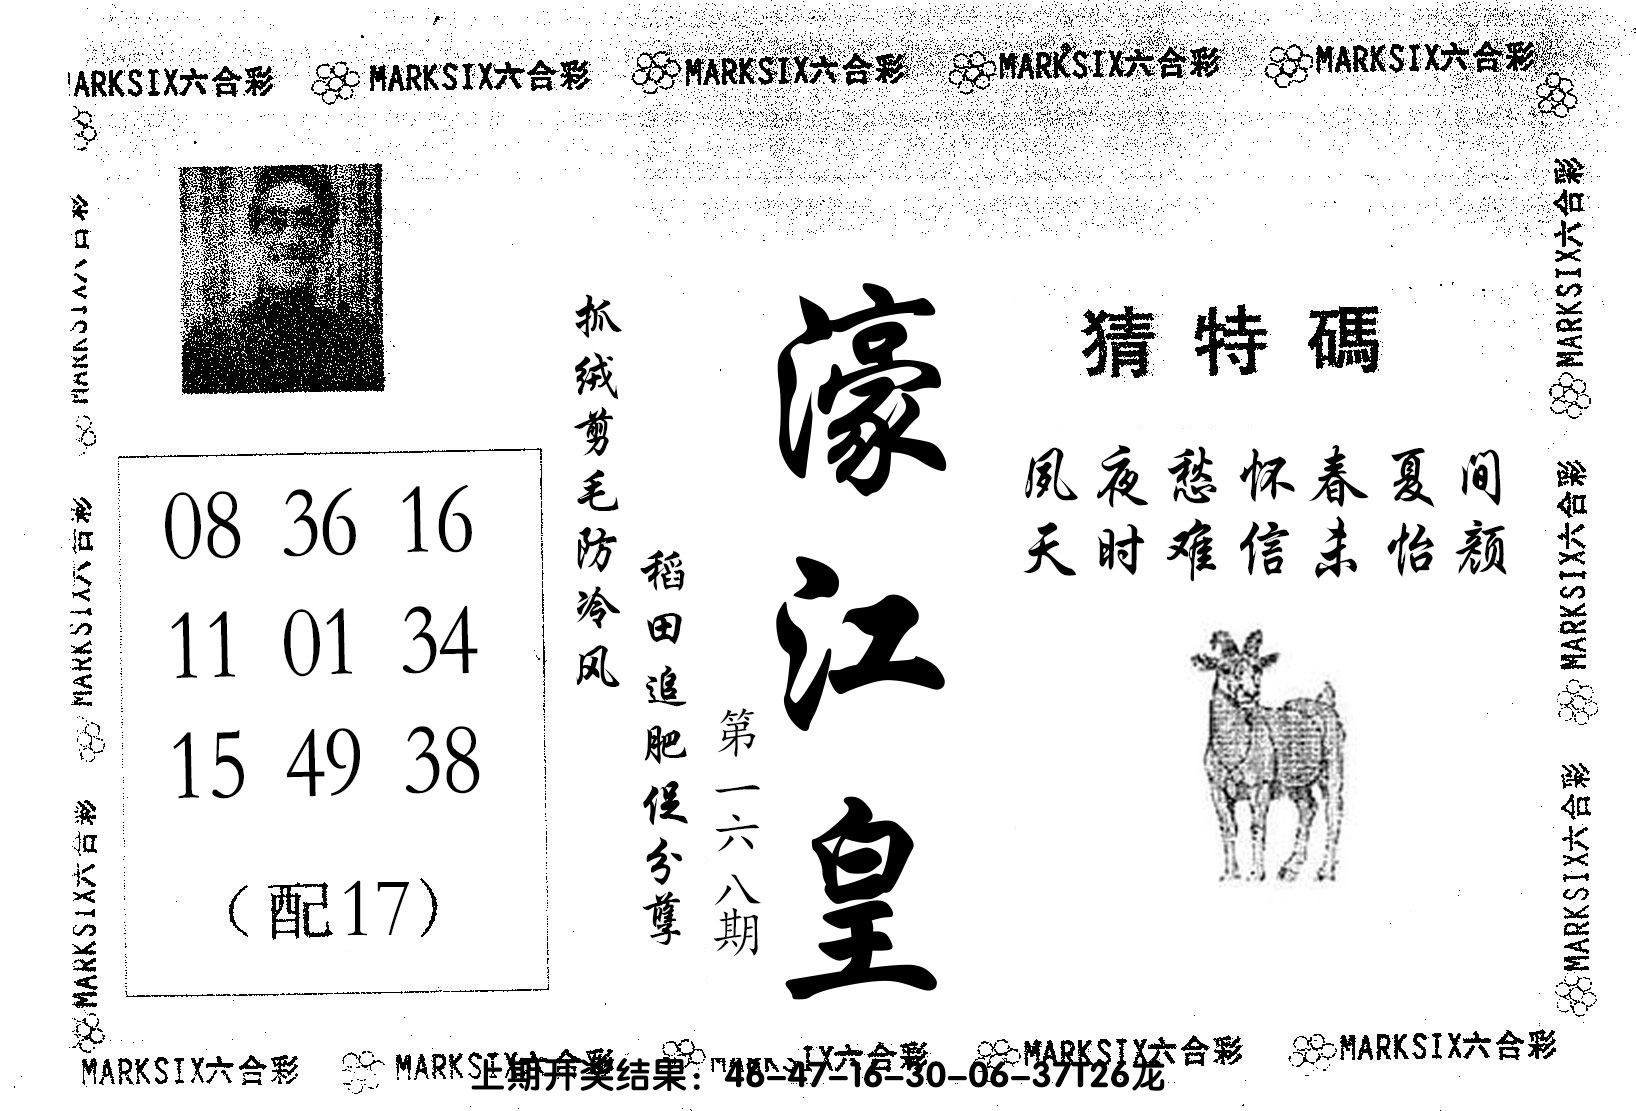 MARKSIX六合彩 MARKSIX六合彩 MARKSIX六合彩 MARKSIX六合彩 MARKSIX六合彩
猜特碼
夙夜愁怀春夏间
天时难信未怡颜
濠江皇
第一六八期
稻田追肥促分孽
抓绒剪毛防冷风
08 36 16
11 01 34
15 49 38
（配17）
MARKSIX六合彩
MARKSIX六合彩
MARKSIX六合彩
MARKSIX六合彩
MARKSIX六合彩
MARKSIX六合彩
MARKSIX六合彩 MARKSIX六合彩 MARKSIX六合彩 MARKSIX六合彩 MARKSIX六合彩
上期开奖结果：48-47-16-30-06-37T26龙